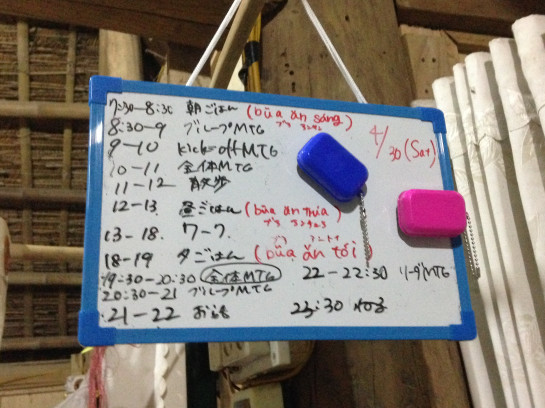 7:30-8:30 朝ごはん (bữa ăn sáng)
ブア アンサン
8:30-9 グループMTG
4/30(Sat)
9-10 kick-off MTG
10-11 全体MTG
11-12 散歩
12-13 昼ごはん (bữa ăn trưa)
13-18. ワーク
18-19 夕ごはん (bữa ăn tối)
19:30-20:30 全体MTG
22-22:30 リーダMTG
20:30-21 グループMTG
21-22 お湯
23:30 ねる